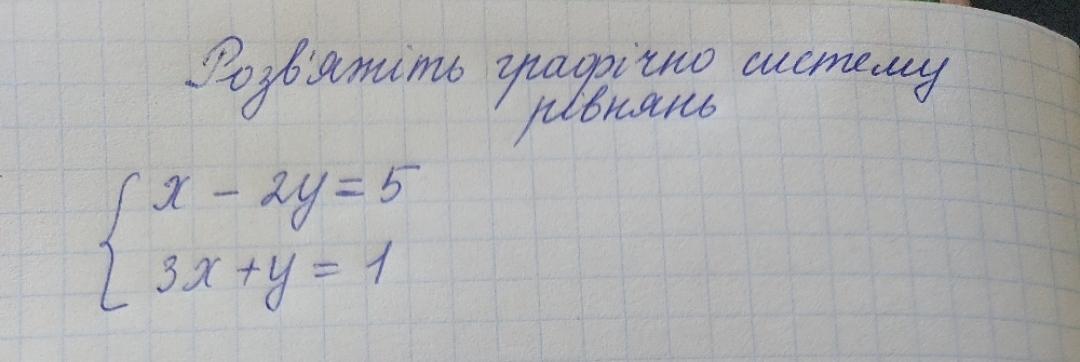 Розв'яжіть графічно систему
рівнянь
x - 2y = 5
3x + y = 1